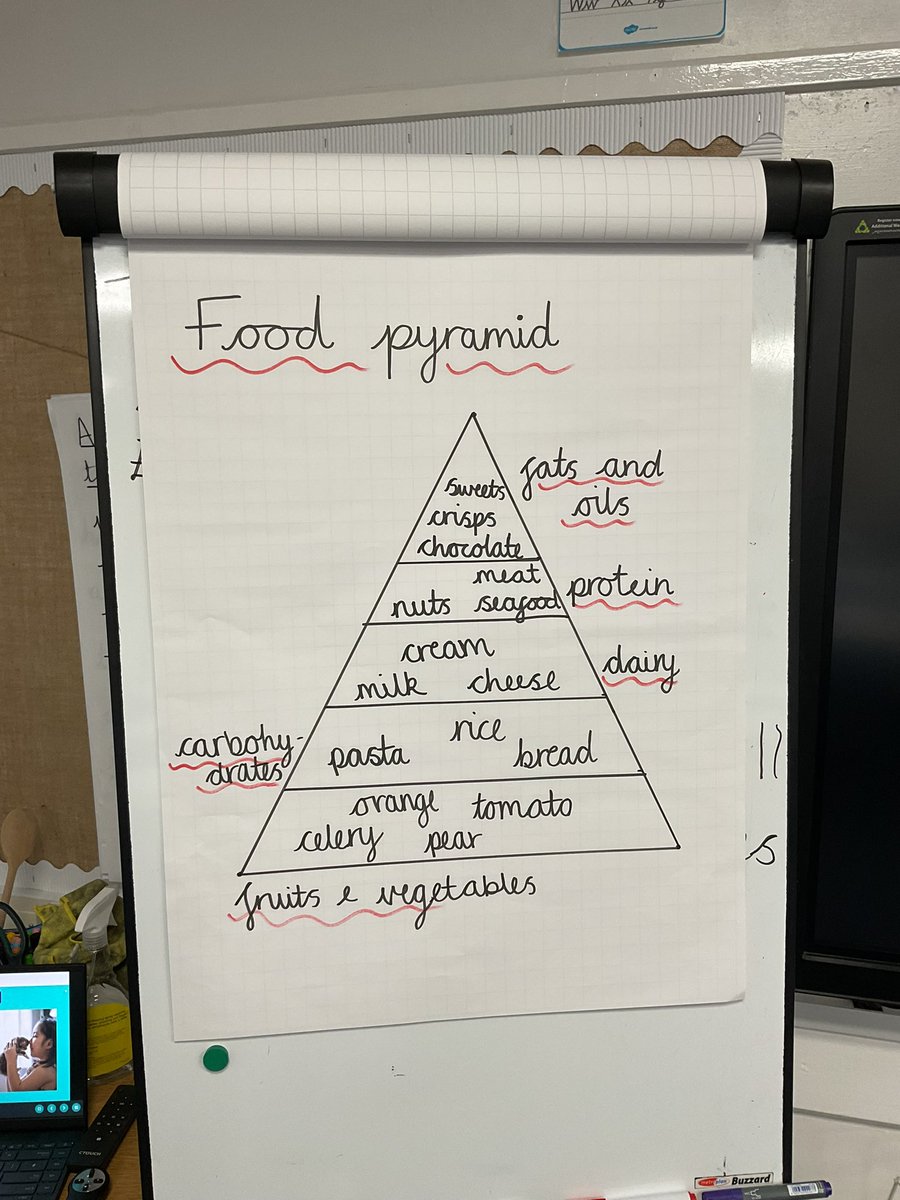 Food pyramid
fats and
oils
sweets
crisps
chocolate
meat
nuts seafood
protein
cream
milk cheese
dairy
rice
pasta bread
carbohy-
drates
orange tomato
celery pear
fruits & vegetables
CTOUCH
Buzzard